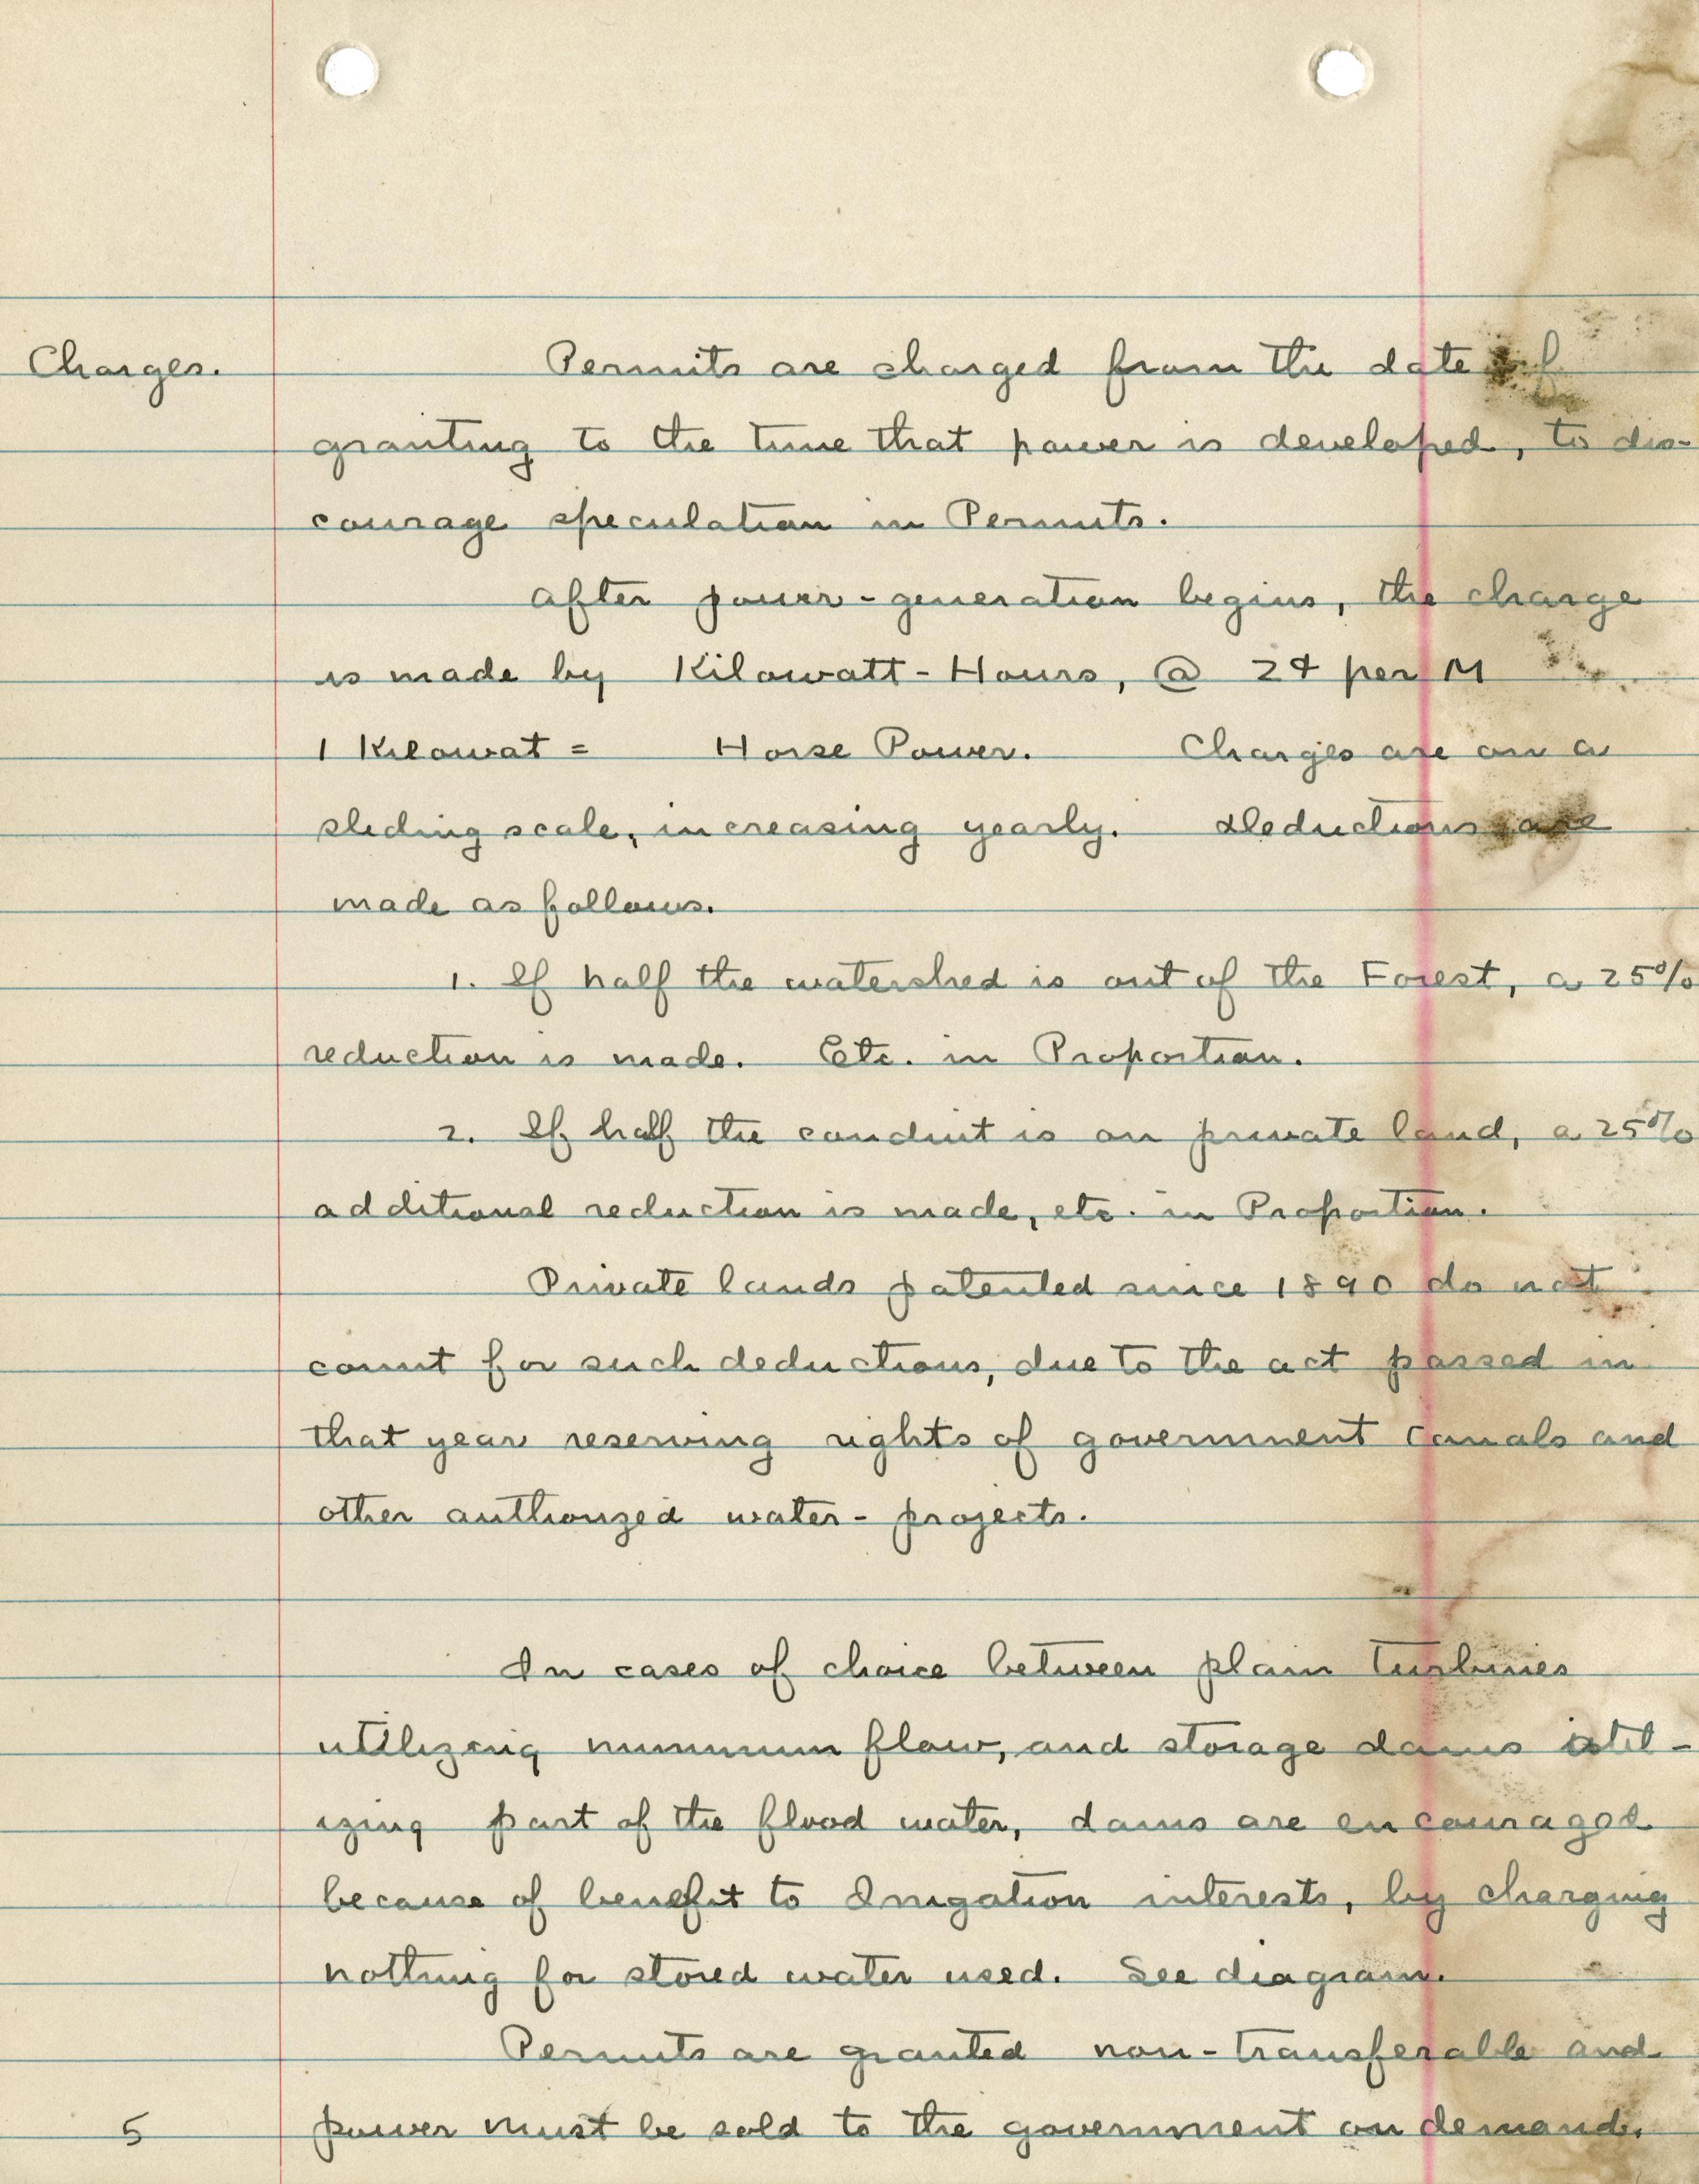 Charges.
Permits are charged from the date of
granting to the time that power is developed, to dis-
courage speculation in Permits.
After power-generation begins, the charge
is made by Kilowatt-Hours, @ 2¢ per M
1 Kilowat =     Horse Power.     Charges are on a
sliding scale, increasing yearly. Deductions are
made as follows.
1. If half the watershed is out of the Forest, a 25%
reduction is made. Etc. in Proportion.
2. If half the conduit is on private land, a 25%
additional reduction is made, etc. in Proportion.
Private lands patented since 1890 do not
count for such deductions, due to the act passed in
that year reserving rights of government canals and
other authorized water-projects.
In cases of choice between plain turbines
utilizing minimum flow, and storage dams util-
izing part of the flood water, dams are encouraged
because of benefit to Irrigation interests, by charging
nothing for stored water used. See diagram.
Permits are granted non-transferable and
power must be sold to the government on demand.
5